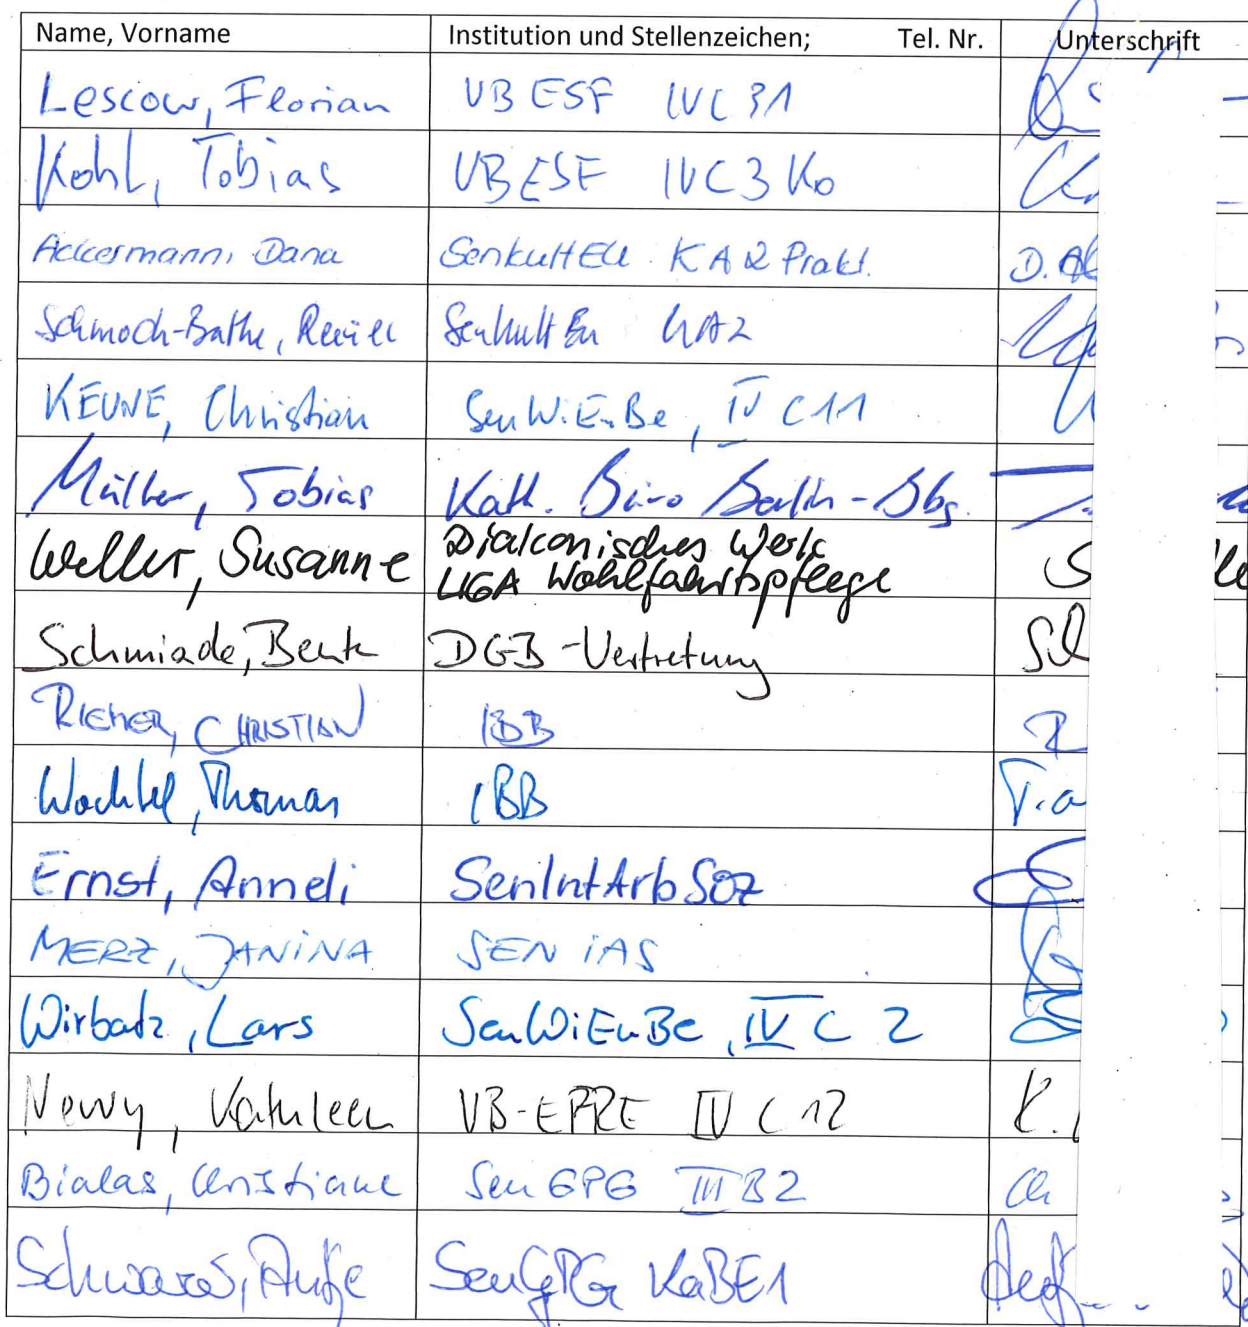 Name, Vorname Institution und Stellenzeichen; Tel. Nr. Unterschrift
Lescow, Florian VB ESF IV C 31
Kohl, Tobias VB ESF IV C 3 Ko
Ackermann, Dana SenKultEU KA 2 Prakt. D.
Schmoch-Bathe, SenKultEu KA2
KEUNE, Christian SenWiEnBe, IV C 11
Müller, Tobias Kath. Büro Berlin-Bbg.
Weller, Susanne Diakonisches Werk
LIGA Wohlfahrtspflege
Schmiade, Bente DGB-Vertretung
RIEMER, CHRISTIAN IBB
Wachtel, Thomas IBB
Ernst, Anneli SenIntArbSoz
MERZ, JANINA SEN IAS
Wirbatz, Lars SenWiEnBe, IV C 2
Nowy, Kathleen VB-EFRE IV C 12 K.
Bialas, Christiane SenGPG III B 2
Schwarz, Antje SenGPG KaBE1